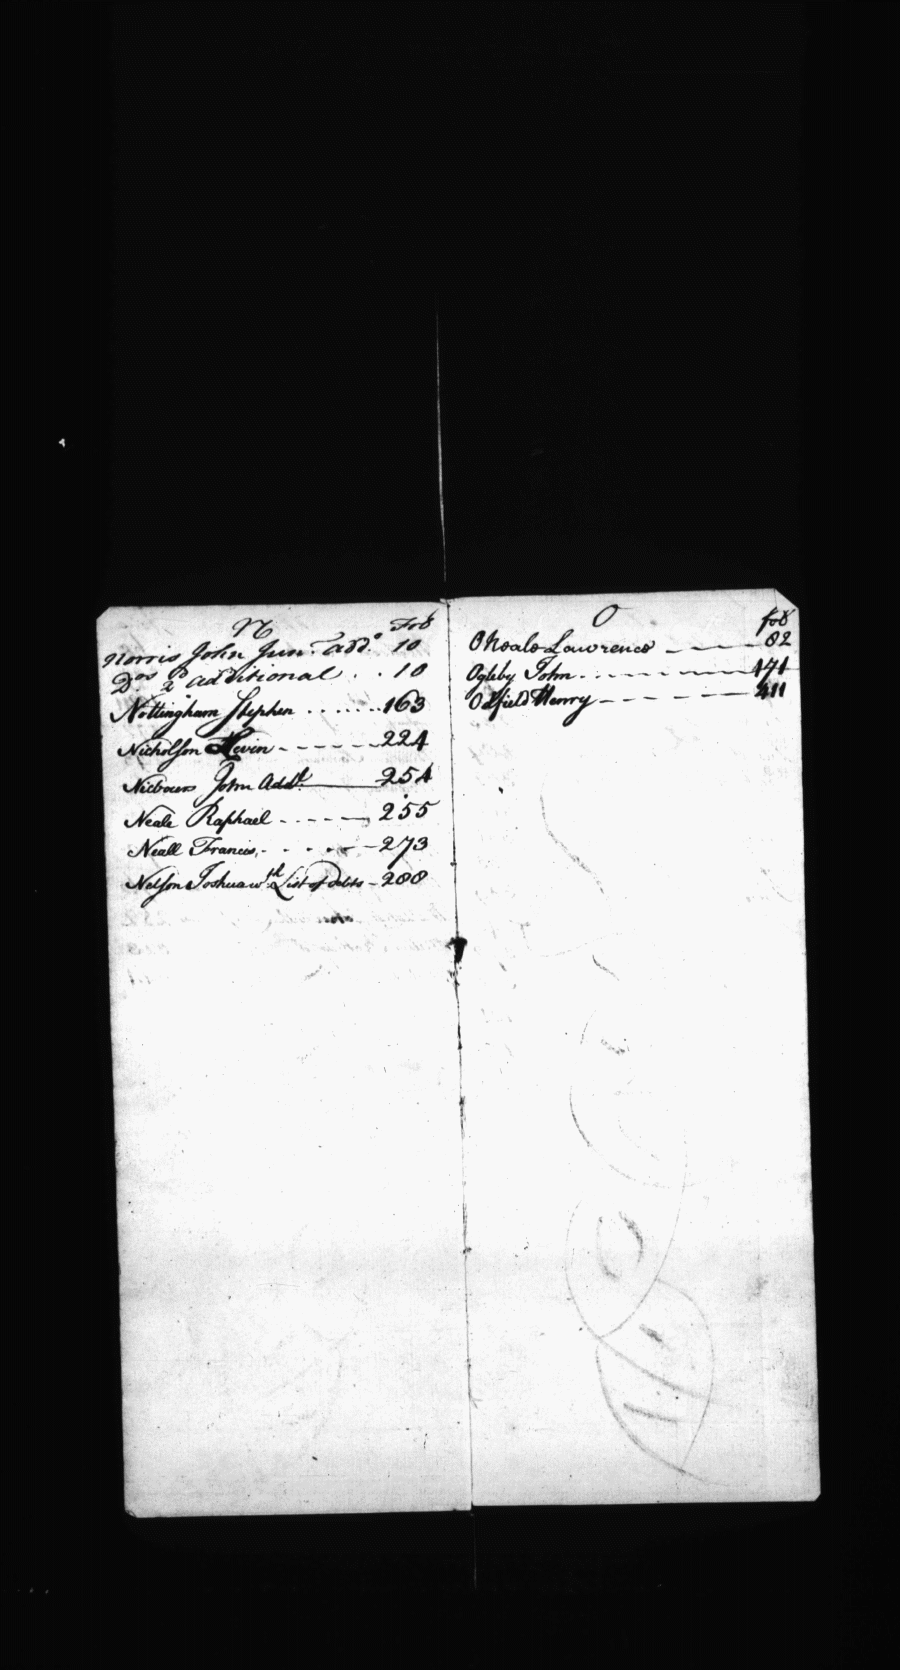 N Fol
Norris John Jun.r add.o 10
D.os 2d additional . . 10
Nottingham Stephen ...... 163
Nicholson Levin ----- 224
John Add.l 254
Neale Raphael ----- 255
Neall Francis, - - - - - 273
Nelson Joshua w.th List of debts - 288
O fol
O Neale Lawrence ---- 82
Ogleby John ...------ 171
Odfield Henry ------ 411